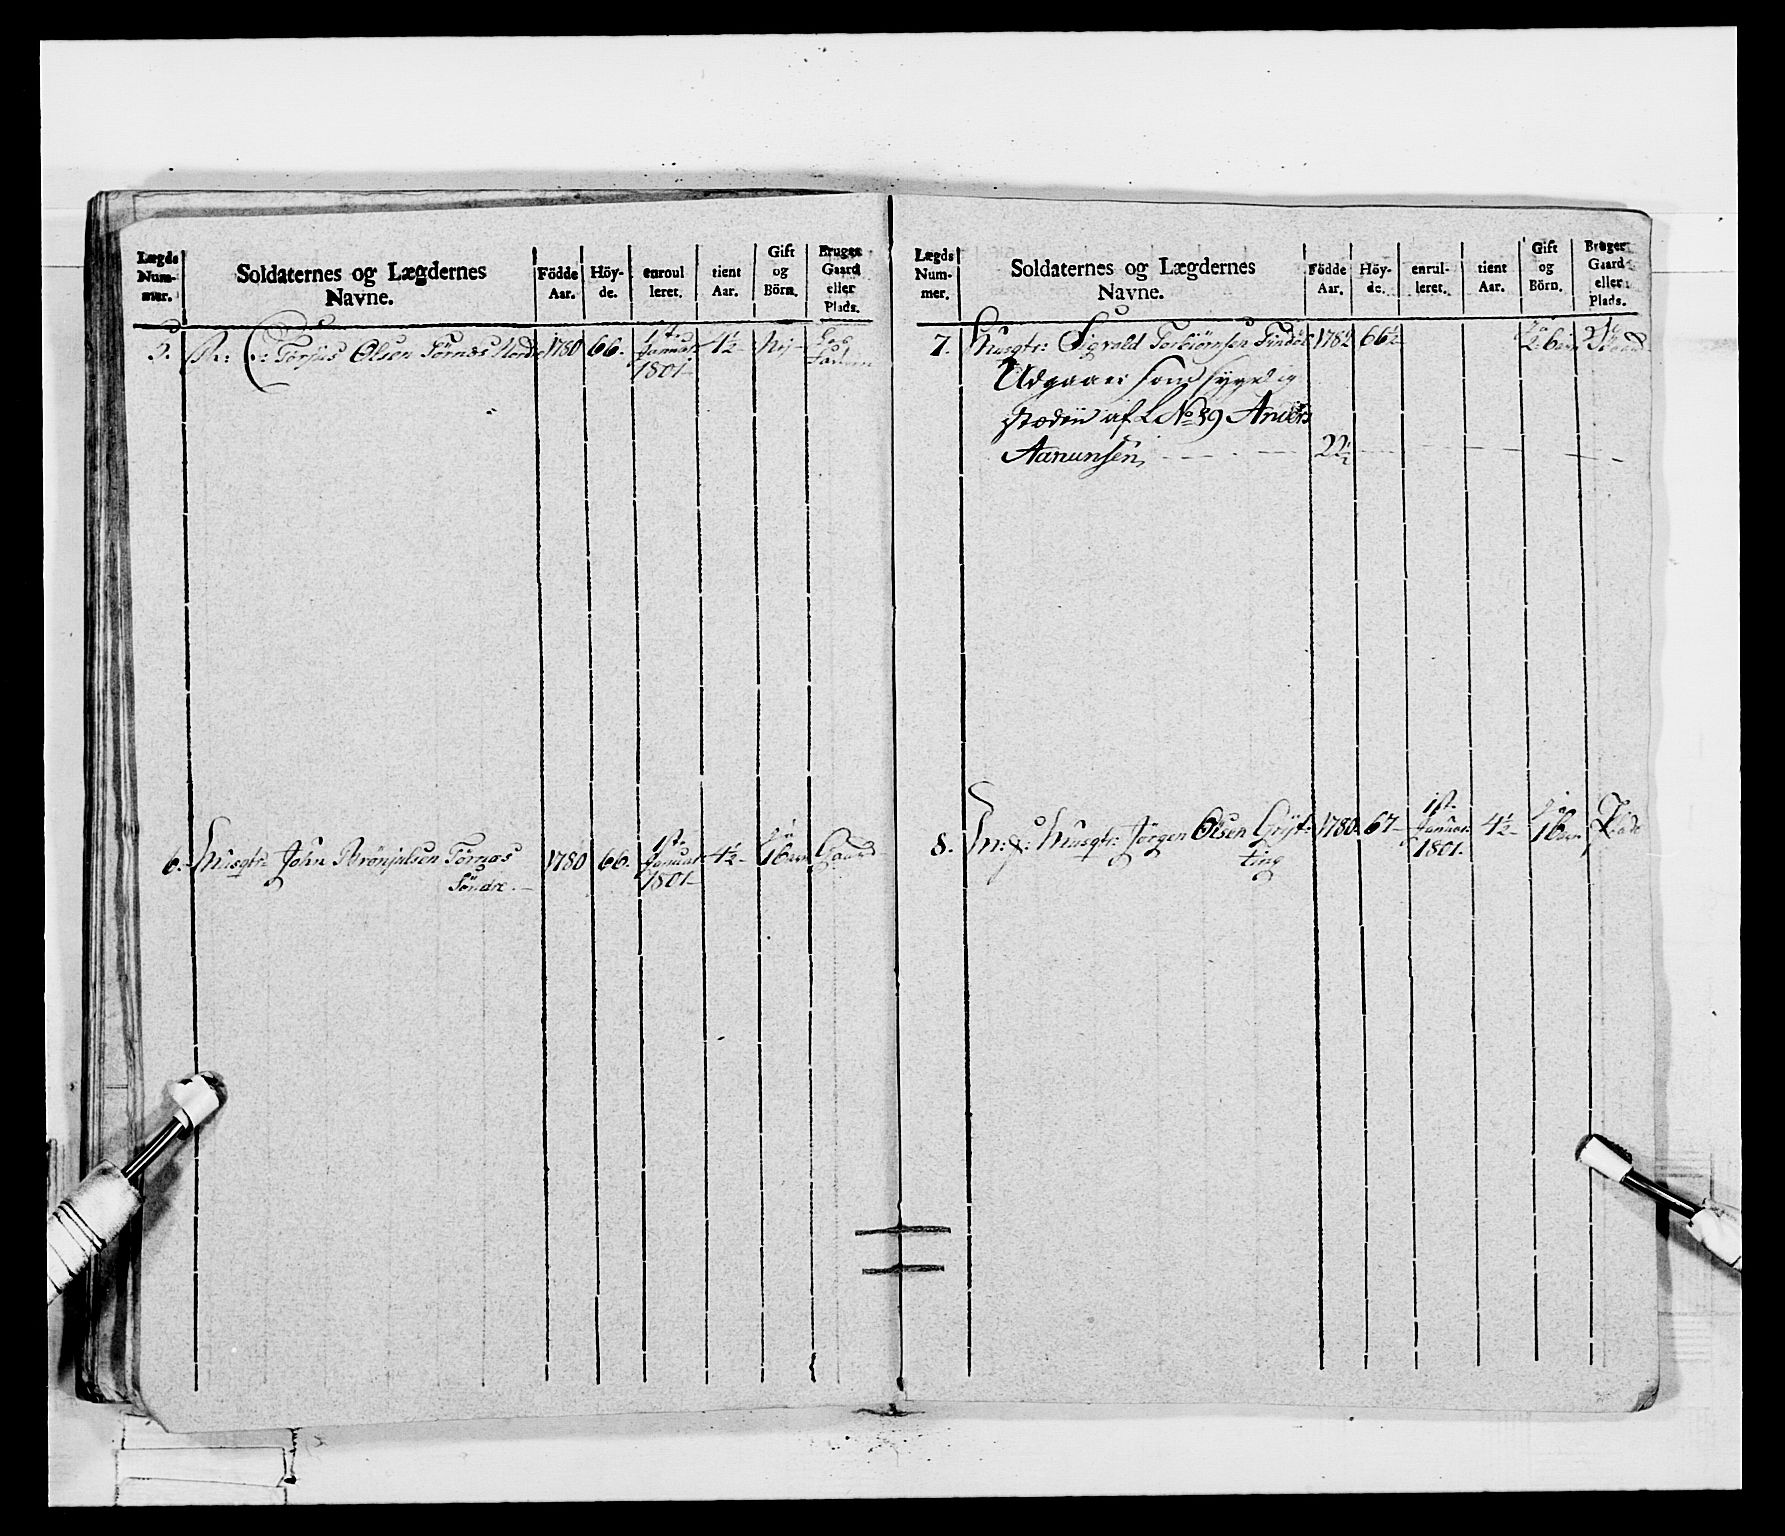 Lægds Num- mer.
Soldaternes og Lægdernes Navne.
Födde Aar.
Höy- de.
enroul leret.
tient Aar.
Gift og Börn.
Bruger Gaard eller Plads.
5. Torjus Olsen Törnæs Nordre 1780 66. 1st. Januar 1801 4½ Nej
6. Musqtr: John Brönjulsen Törnæs Söndre. 1780 66. 1st. Januar 1801 4½ Ja 1 barn Gaard
Lægds Num- mer.
Soldaternes og Lægdernes Navne.
Födde Aar.
Höy- de.
enrul- leret.
tient Aar.
Gift og Börn.
Bruger Gaard eller Plads.
7. Musqtr: Sigvald Torbiörnsen 66½ Ja 2 börn
Udgaaer som sygelig
steden af L No 39 Anders
Aanunsen, 22½
8. Musqtr: Jörgen Olsen Gryt- ting 1780 67 1st. Januar 1801. 4½ Ja 1 barn Plads